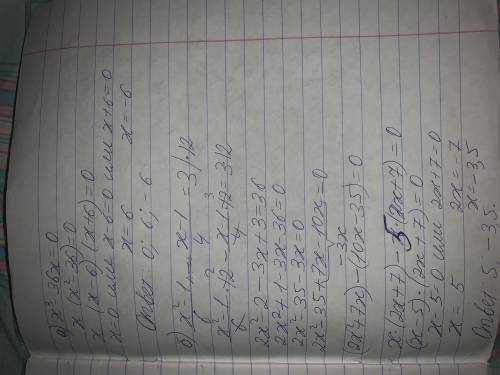 а) x² - 36x = 0
x (x² - 36) = 0
x (x - 6) · (x + 6) = 0
x = 0 или x - 6 = 0 или x + 6 = 0
x = 6 x = -6
Ответ: 0; 6; -6
б) x² - 1 / 6 - x - 1 / 4 = 3 | · 12
x² - 1 / 6 · 12 - x - 1 / 4 · 12 = 3 · 12
2x² - 2 - 3x + 3 = 36
2x² + 1 - 3x - 36 = 0
2x² - 35 - 3x = 0
2x² - 35 + 7x - 10x = 0
-3x
(2x² + 7x) - (10x - 35) = 0
x · (2x + 7) - 5 (2x + 7) = 0
(x - 5) · (2x + 7) = 0
x - 5 = 0 или 2x + 7 = 0
x = 5 2x = -7
x = -3,5
Ответ: 5; -3,5.